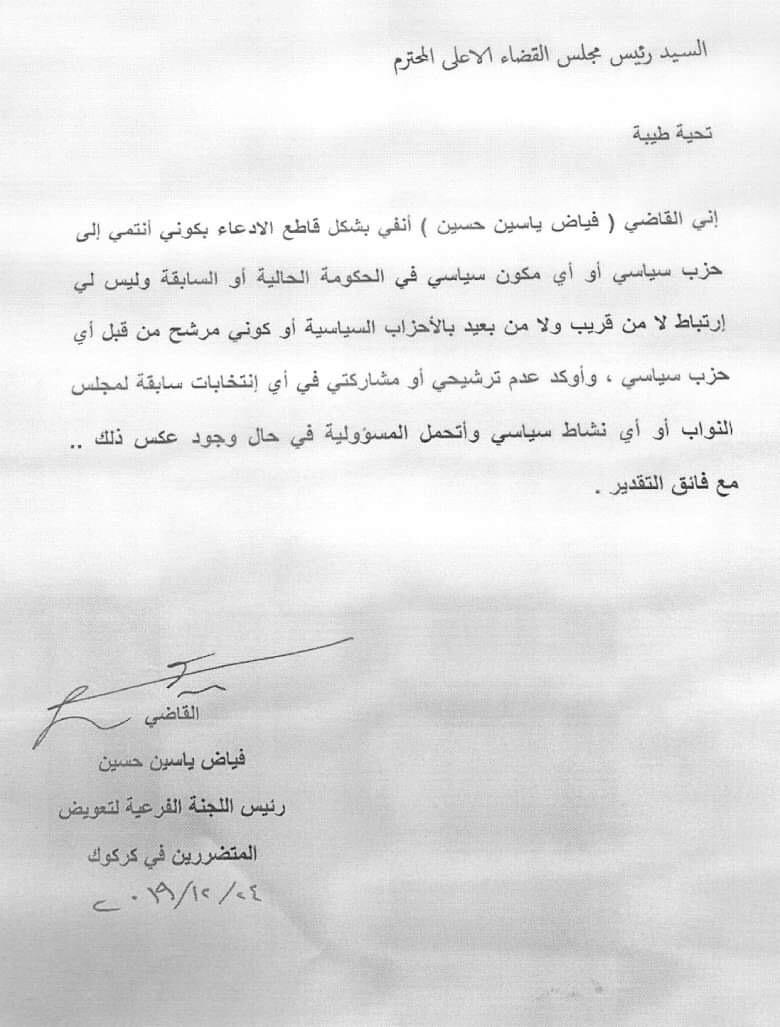 السيد رئيس مجلس القضاء الاعلى المحترم
تحية طيبة
إني القاضي ( فياض ياسين حسين ) أنفي بشكل قاطع الادعاء بكوني أنتمي إلى
حزب سياسي أو أي مكون سياسي في الحكومة الحالية أو السابقة وليس لي
إرتباط لا من قريب ولا من بعيد بالأحزاب السياسية أو كوني مرشح من قبل أي
حزب سياسي ، وأوكد عدم ترشيحي أو مشاركتي في أي إنتخابات سابقة لمجلس
النواب أو أي نشاط سياسي وأتحمل المسؤولية في حال وجود عكس ذلك ..
مع فائق التقدير .
القاضي
فياض ياسين حسين
رئيس اللجنة الفرعية لتعويض
المتضررين في كركوك
٢٠١٩/١٢/٢٤